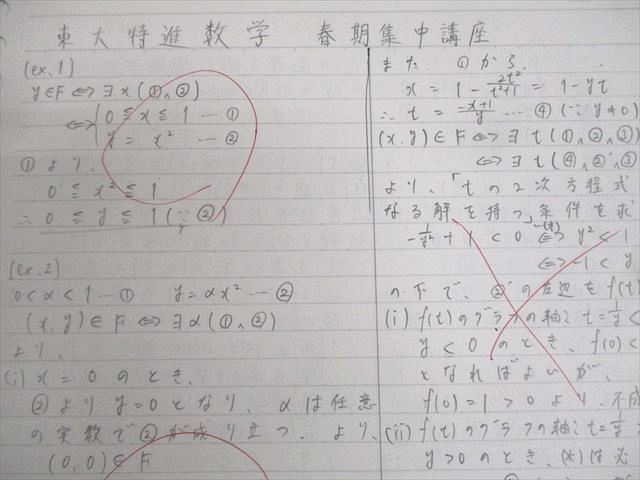 東大特進数学 春期集中講座
(ex.1)
y∈F⇔∃x(①∧②)
⇔{0≦x≦1…①
y=x²…②
①より、
0≦x²≦1
∴0≦y≦1(∵②)
(ex.2)
0<α<1…① y=αx²…②
(x,y)∈F⇔∃α(①∧②)
より、
(i) x=0のとき、
②よりy=0となり、αは任意
の実数で②が成り立つ。より、
(0,0)∈F
また ①から、
x=1-2t²/(t²+1)=1-yt
∴t=(-x+1)/y…④(∵y≠0)
(x,y)∈F⇔∃t(①∧②∧③)
⇔∃t(④∧②'∧③
より、「tの2次方程式
なる解を持つ」条件を求
-1/y²+1<0⇔y²<1
⇔-1<y
の下で、②'の左辺をf(t)
(i) f(t)のグラフの軸:t=1/y<
y<0のとき、f(0)<
となればよいが、
f(0)=1>0より、不成
(ii) f(t)のグラフの軸:t=1/y
y>0のとき、(*)は必